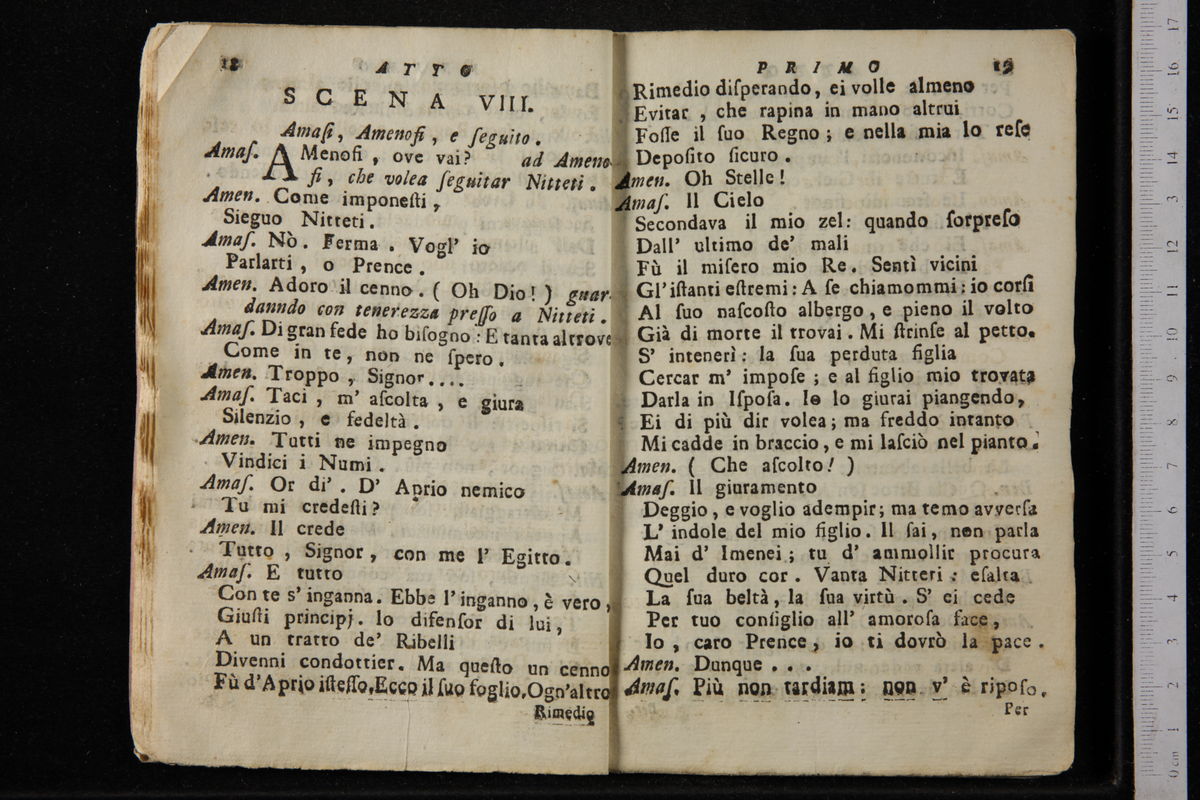 18
ATTO
SCENA VIII.
Amaſi, Amenofi, e ſeguito.
Amaſ. AMenofi, ove vai? ad Ameno-
fi, che volea ſeguitar Nitteti.
Amen. Come imponeſti,
Sieguo Nitteti.
Amaſ. Nò. Ferma. Vogl' io
Parlarti, o Prence.
Amen. Adoro il cenno. ( Oh Dio! ) guar-
danndo con tenerezza preſſo a Nitteti.
Amaſ. Di gran fede ho biſogno: E tanta altrove
Come in te, non ne ſpero.
Amen. Troppo, Signor....
Amaſ. Taci, m' aſcolta, e giura
Silenzio, e fedeltà.
Amen. Tutti ne impegno
Vindici i Numi.
Amaſ. Or di'. D' Aprio nemico
Tu mi credeſti?
Amen. Il crede
Tutto, Signor, con me l' Egitto.
Amaſ. E tutto
Con te s' inganna. Ebbe l' inganno, è vero,
Giuſti principj. Io difenſor di lui,
A un tratto de' Ribelli
Divenni condottier. Ma queſto un cenno
Fù d'Aprio iſteſſo. Ecco il ſuo foglio. Ogn'altro
Rimedio
PRIMO
19
Rimedio diſperando, ei volle almeno
Evitar, che rapina in mano altrui
Foſſe il ſuo Regno; e nella mia lo reſe
Depoſito ſicuro.
Amen. Oh Stelle!
Amaſ. Il Cielo
Secondava il mio zel: quando ſorpreſo
Dall' ultimo de' mali
Fù il miſero mio Re. Sentì vicini
Gl' iſtanti eſtremi: A ſe chiamommi: io corſi
Al ſuo naſcoſto albergo, e pieno il volto
Già di morte il trovai. Mi ſtrinſe al petto.
S' intenerì: la ſua perduta figlia
Cercar m' impoſe; e al figlio mio trovata
Darla in Iſpoſa. Io lo giurai piangendo,
Ei di più dir volea; ma freddo intanto
Mi cadde in braccio, e mi laſciò nel pianto.
Amen. ( Che aſcolto! )
Amaſ. Il giuramento
Deggio, e voglio adempir; ma temo avverſa
L' indole del mio figlio. Il ſai, non parla
Mai d' Imenei; tu d' ammollir procura
Quel duro cor. Vanta Nitteri: eſalta
La ſua beltà, la ſua virtù. S' ei cede
Per tuo conſiglio all' amoroſa face,
Io, caro Prence, io ti dovrò la pace.
Amen. Dunque...
Amaſ. Più non tardiam: non v' è ripoſo.
Per
0 cm 1 2 3 4 5 6 7 8 9 10 11 12 13 14 15 16 17